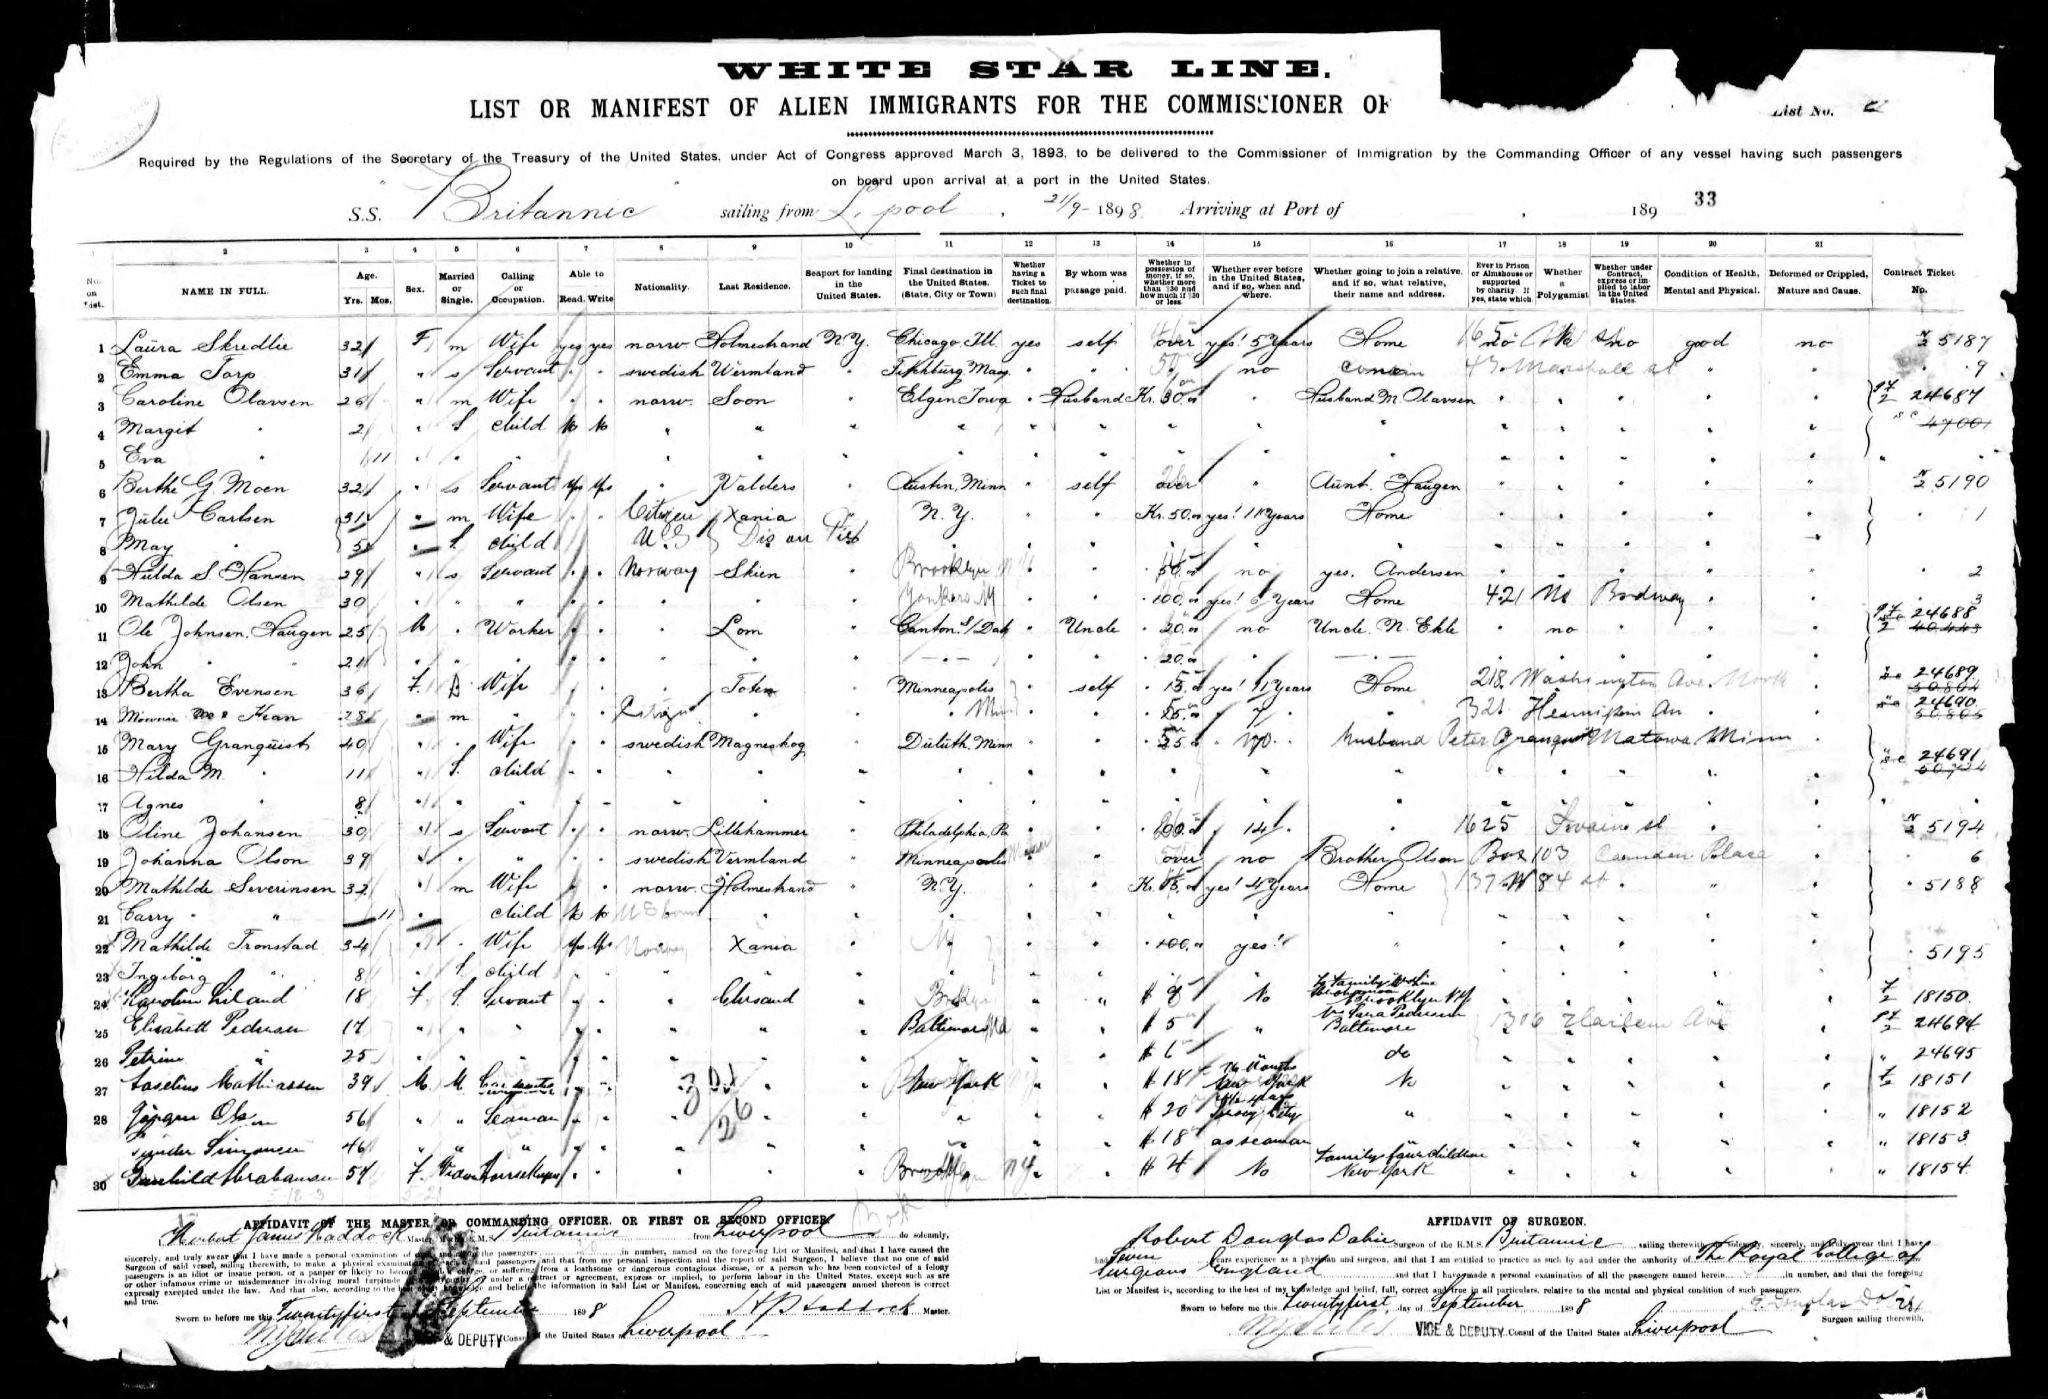 WHITE STAR LINE.
LIST OR MANIFEST OF ALIEN IMMIGRANTS FOR THE COMMISSIONER OF
List No.
Required by the Regulations of the Secretary of the Treasury of the United States, under Act of Congress approved March 3, 1893, to be delivered to the Commissioner of Immigration by the Commanding Officer of any vessel having such passengers
on board upon arrival at a port in the United States.
S.S. Britannic sailing from L.pool, 21/9 - 1898 Arriving at Port of , 189 33
1 2 3 4 5 6 7 8 9 10 11 12 13 14 15 16 17 18 19 20 21
No. on List. NAME IN FULL. Age. Yrs. Mos. Sex. Married or Single. Calling or Occupation. Able to Read. Write Nationality. Last Residence. Seaport for landing in the United States. Final destination in the United States. (State, City or Town) Whether having a Ticket to such final destination. By whom was passage paid. Whether in possession of money, if so, whether more than $30 and how much if $30 or less. Whether ever before in the United States, and if so, when and where. Whether going to join a relative, and if so, what relative, their name and address. Ever in Prison or Almshouse or supported by charity. If yes, state which. Whether a Polygamist Whether under Contract, express or implied to labor in the United States. Condition of Health, Mental and Physical. Deformed or Crippled, Nature and Cause. Contract Ticket No.
1 Laura Skredlie 32 F m Wife yes yes norw. Holmestrand N.Y. Chicago, Ill. yes self over yes! 5 years Home 165 no no good no 5187
2 Emma Torp 31 " s Servant " " swedish Wermland " Fitchburg Mass " " 50 no cousin 43 Marshall st " " 9
3 Caroline Olavsen 26 " m Wife " " norw. Soon " Elgen Iowa " Husband Kr. 30.00 " Husband M. Olavsen " " " " " 24687
4 Margit " 2 " S child No No " " " " " " " " " " " " " 47001
5 Eva " 11 " " " " " " " " " " " "
6 Berthe G. Moen 32 " s Servant yes yes " Valders " Austin, Minn " self over " Aunt. Haugen " " " " " 5190
7 Julie Carlsen 31 " m Wife " " Citizen Xania " N.Y. " " Kr. 50.00 yes! 11 years Home " " " " " 1
8 May " 5 " S. child U.S Dis on Pier
9 Hulda S. Hansen 29 " s Servant " " Norway Skien " Brooklyn " " 50.00 no yes. Andersen " " " " " 2
10 Mathilde Olsen 30 " " " " " " " " Yonkers NY " " 100.00 yes! years Home 421 No Brodway " " 3
11 Ole Johnsen Haugen 25 M " Worker " " " Lom " Canton S/Dak " Uncle 20.00 no Uncle. N. Ekle " no " " " 24688
12 John " " 21 " " " " " " " " — " — " " 20.00 " — " — " " " " "
13 Bertha Evensen 36 F. Wife " " " Toten " Minneapolis " self 15.00 yes! 11 years Home 218 Washington Ave. North " 24689 50804
14 28 " m " " " Citizen " " " Minn " " 15.00 " " 321 " " 24690 50805
15 Mary Granquist 40 " " Wife " " swedish Magneskog " Duluth, Minn " " 25.00 no Husband Peter Granquist Matowa Minn "
16 Hilda M. " 11 " S. child " " " " " " " " " " " " " " " 24691
17 Agnes " 8 " " " " " " " " " " " " " " " " " "
18 Oline Johansen 30 " s Servant " " norw. Lillehammer " Philadelphia, Pa " " 14 " 1625 st " " 5194
19 Johanna Olson 39 " " " " " swedish Vermland " Minneapolis " " over no Brother, Olson Box 103 Camden Place " " 6
20 Mathilde Severinsen 32 " m Wife " " norw. Holmestrand " N.Y. " " Kr. 15.00 yes! 4 years Home 137 W 84 st " " 5188
21 Carry " " 11 " child No No US born " " " " " " " " " " " " "
22 Mathilde Tronstad 34 " " Wife yes yes Norway Xania " NY " " 100.00 yes! " " " " " " 5195
23 Ingeborg " 8 " S. child " " " " " " " " " " " " " " " "
24 Liland 18 F. S. Servant " " " Chrsand " Brklyn " " $ 8 No To family Brooklyn NY " " " " " 18150
25 Elisabett Pedersen 17 " " " " " " " " Baltimore Md " " $ 5 " Pedersen Baltimore 1306 Harlem Ave " " 24694
26 Petrine " 25 " " " " " " " " " " " $ 6 " do " " " " " 24695
27 Mathiassen 39 M. M. Carpenter " " " " " New York " " $ 18 Months New York No " " " " " 18151
28 Jörgen Olsen 56 " " Seaman " " " " " " " " $ 20 years Jersey City " " " " " " 18152
Simonsen 46 " " " " " " " " " " " $ 18 as seaman " " " " " 18153
30 Abrahamsen 57 F. Widow Housekeeper " " " " " Brooklyn NY " " $ 4 No family four children New York " " " " " 18154
AFFIDAVIT OF THE MASTER OR COMMANDING OFFICER, OR FIRST OR SECOND OFFICER.
I, Herbert James Haddock Master of the R.M.S. Britannic from Liverpool do solemnly,
sincerely, and truly swear that I have made a personal examination of the passengers in number, named on the foregoing List or Manifest, and that I have caused the
Surgeon of said vessel, sailing therewith, to make a physical examination of said passengers and that from my personal inspection and the report of said Surgeon, I believe that no one of said
passengers is an idiot or insane person, or a pauper or likely to become a public charge, or suffering from a loathsome or dangerous contagious disease, or a person who has been convicted of a felony
or other infamous crime or misdemeanor involving moral turpitude under a contract or agreement, express or implied, to perform labour in the United States, except such as are
expressly excepted under the law. And that also, according to the best of my knowledge and belief, the information in said List or Manifest, concerning each of said passengers named therein is correct
and true.
Sworn to before me this Twentyfirst September 1898 HJHaddock Master.
VICE & DEPUTY Consul of the United States at Liverpool
AFFIDAVIT OF SURGEON.
Robert Douglas Dabie Surgeon of the R.M.S. Britannic sailing therewith, do solemnly, sincerely, and truly swear that I have
had Seven years experience as a physician and surgeon, and that I am entitled to practice as such by and under the authority of The Royal College of
Surgeons England and that I have made a personal examination of all the passengers named herein in number, and that the foregoing
List or Manifest is, according to the best of my knowledge and belief, full, correct and true in all particulars, relative to the mental and physical condition of such passengers.
Sworn to before me this twentyfirst day of September 1898
Surgeon sailing therewith.
VICE & DEPUTY Consul of the United States at Liverpool